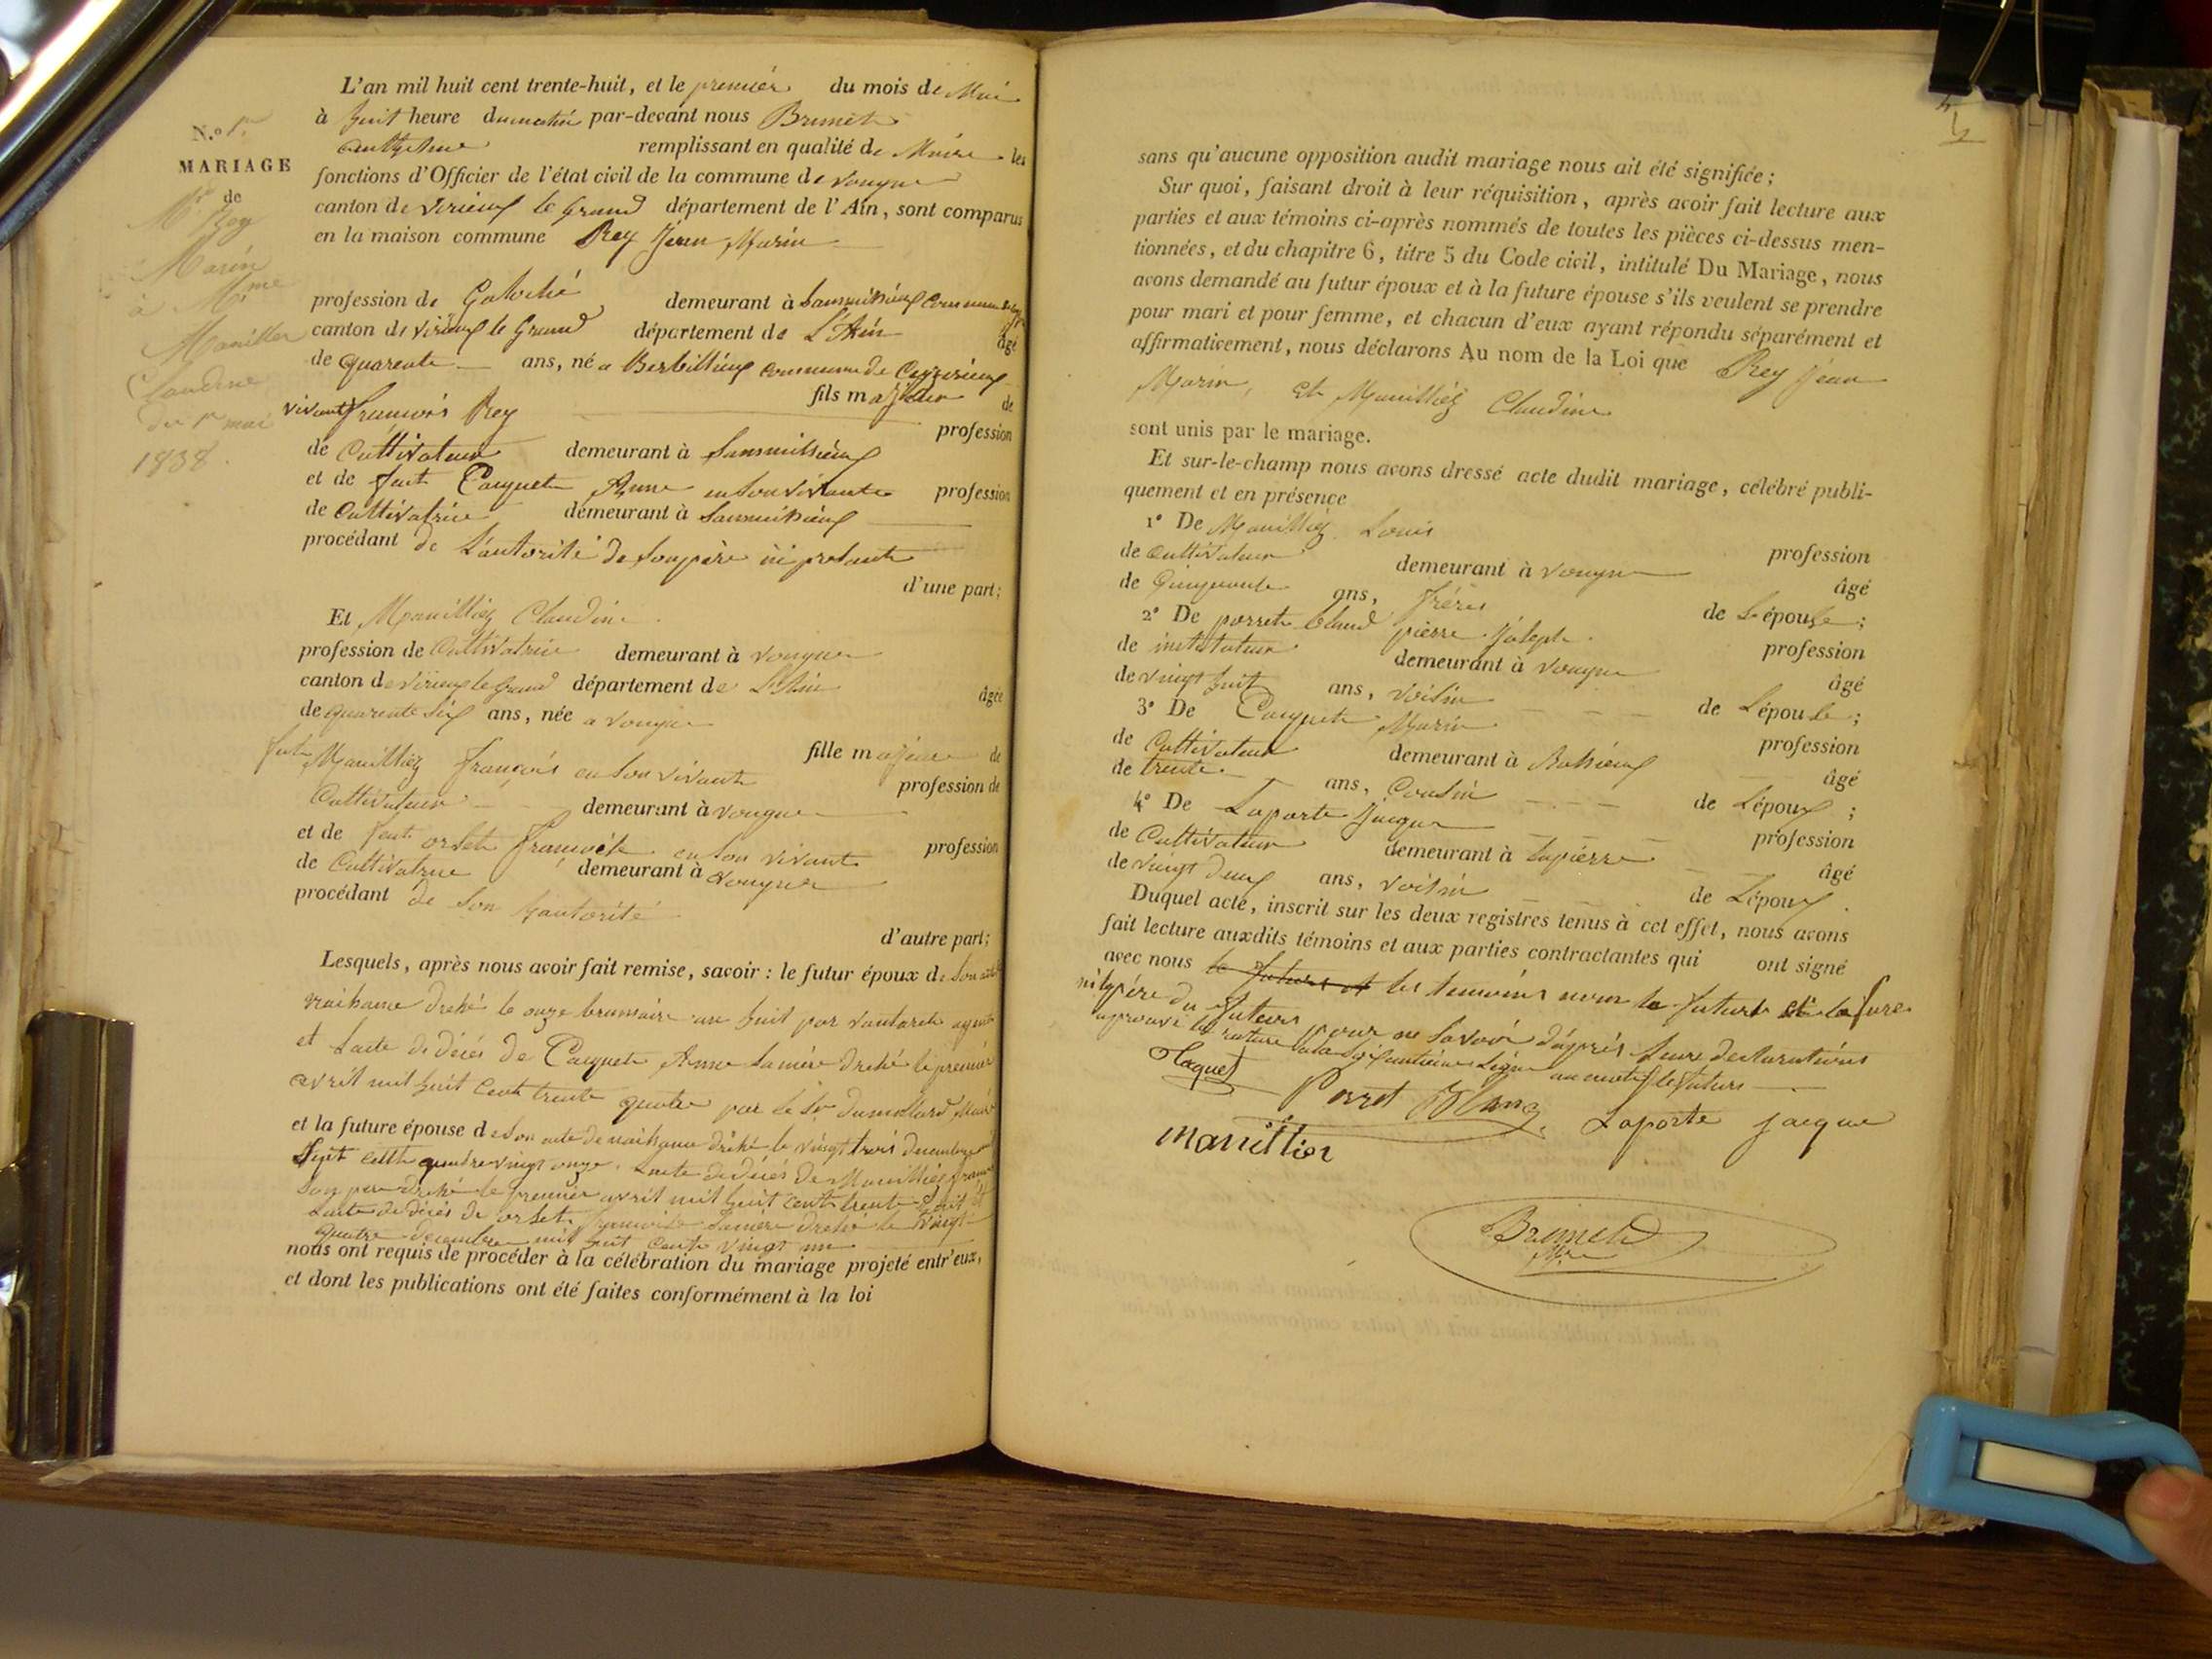 L'an mil huit cent trente-huit, et le premier du mois de Mai
à huit heure du matin par-devant nous Brunet
anthelme remplissant en qualité de Maire les
fonctions d'Officier de l'état civil de la commune de vongne
canton de virieux le grand département de l'Ain, sont comparus
en la maison commune Rey Jean Marin
N.o 1er
MARIAGE
de
Mr Rey
Marin
à Mme
Manillier
Claudine
du 1er mai
1838.
profession de demeurant à commune
canton de virieux le Grand département de L'Ain âgé
de quarente ans, né a Berbillieux commune de Ceyzerieux
fils majeur de
vivant francois Rey profession
de Cultivateur demeurant à
et de fut Caquet Anne en son vivante profession
de Cultivatrice demeurant à
procédant de L'autorité de son père ici présant
d'une part;
Et Manilliez Claudine
profession de Cultivatrice demeurant à vongne
canton de virieux le Grand département de L'Ain âgée
de quarente six ans, née a vongne
fille majeur de
fut Manilliez françois en son vivant profession de
Cultivateur demeurant à vongne
et de feut orset francoise en son vivant profession
de Cultivatrice demeurant à vongne
procédant de son hautorité
d'autre part;
Lesquels, après nous avoir fait remise, savoir : le futur époux de son acte
naisance dreké le onze brumaire an huit par agent
et Lacte de décés de Caquet Anne sa mère dreké le premier
avril mil huit Cent trente quatre par le Sr dumollard Maire
et la future épouse de son acte de naisance dreké le vingt trois decembre
Sept cent quadre vingt onze. Lacte de décés de Manilliez
son pere dreké le premier avril mil huit cent trente huit et
Lacte de décés de orset francoise sa mère dreké le vingt
quatre decembre mil huit cent vingt un
nous ont requis de procéder à la célébration du mariage projeté entr'eux,
et dont les publications ont été faites conformément à la loi
sans qu'aucune opposition audit mariage nous ait été signifiée;
Sur quoi, faisant droit à leur réquisition, après avoir fait lecture aux
parties et aux témoins ci-après nommés de toutes les pièces ci-dessus men-
tionnées, et du chapitre 6, titre 5 du Code civil, intitulé Du Mariage, nous
avons demandé au futur époux et à la future épouse s'ils veulent se prendre
pour mari et pour femme, et chacun d'eux ayant répondu séparément et
affirmativement, nous déclarons Au nom de la Loi que Rey Jean
Marin, et Manilliez Claudine
sont unis par le mariage.
Et sur-le-champ nous avons dressé acte dudit mariage, célébré publi-
quement et en présence
1° De Manilliez Louis profession
de cultivateur demeurant à vongne âgé
de Cinquante ans, frére de L'épouse;
2° De porret Claud pierre Joseph profession
de instituteur demeurant à vongne âgé
de vingt huit ans, voisin de L'épouse;
3° De Caquet Marin profession
de Cultivateur demeurant à âgé
de trente ans, Cousin de L'époux;
4° De Laporte Jacque profession
de Cultivateur demeurant à lapierre âgé
de vingt deux ans, voisin de L'époux.
Duquel acte, inscrit sur les deux registres tenus à cet effet, nous avons
fait lecture auxdits témoins et aux parties contractantes qui ont signé
avec nous le futur et les temoins non le futur et la future
ni le pére du futeur pour ne savoir d'aprés leure declarations
aprouvé la rature Ligne au mot le futurs
Caquet
Porret
Laporte jacque
manillier
Brunet
Mre